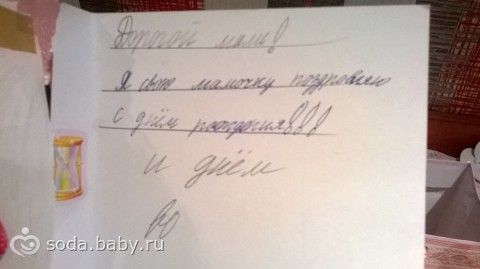 Дорогой маме!
Я свою мамочку поздровляю
с днём рождения!!!
и днём
во
soda.baby.ru